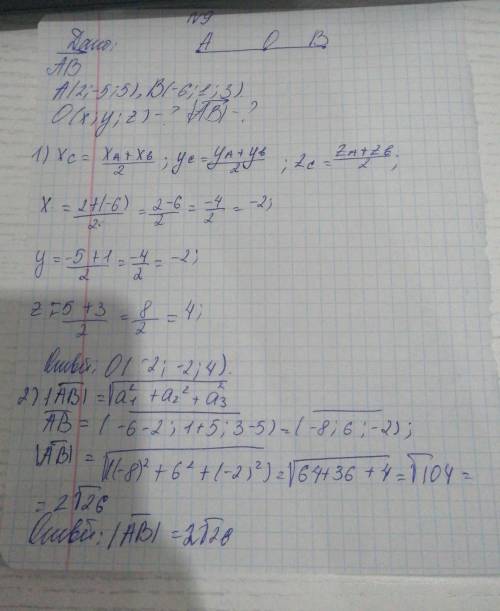 №9
Дано: A O B
AB
A(2;-5;5), B(-6;1;3)
O(x;y;z)-? |AB|-?
1) xc = xA+xB/2 ; yc = yA+yB/2 ; zc = zA+zB/2 ;
x = 2+(-6)/2 = 2-6/2 = -4/2 = -2;
y = -5+1/2 = -4/2 = -2;
z = 5+3/2 = 8/2 = 4;
Ответ: O(-2; -2; 4).
2) |AB| = √a₁² + a₂² + a₃²
AB = (-6-2; 1+5; 3-5) = (-8; 6; -2);
|AB| = √((-8)² + 6² + (-2)²) = √64+36+4 = √104 =
= 2√26
Ответ: |AB| = 2√26